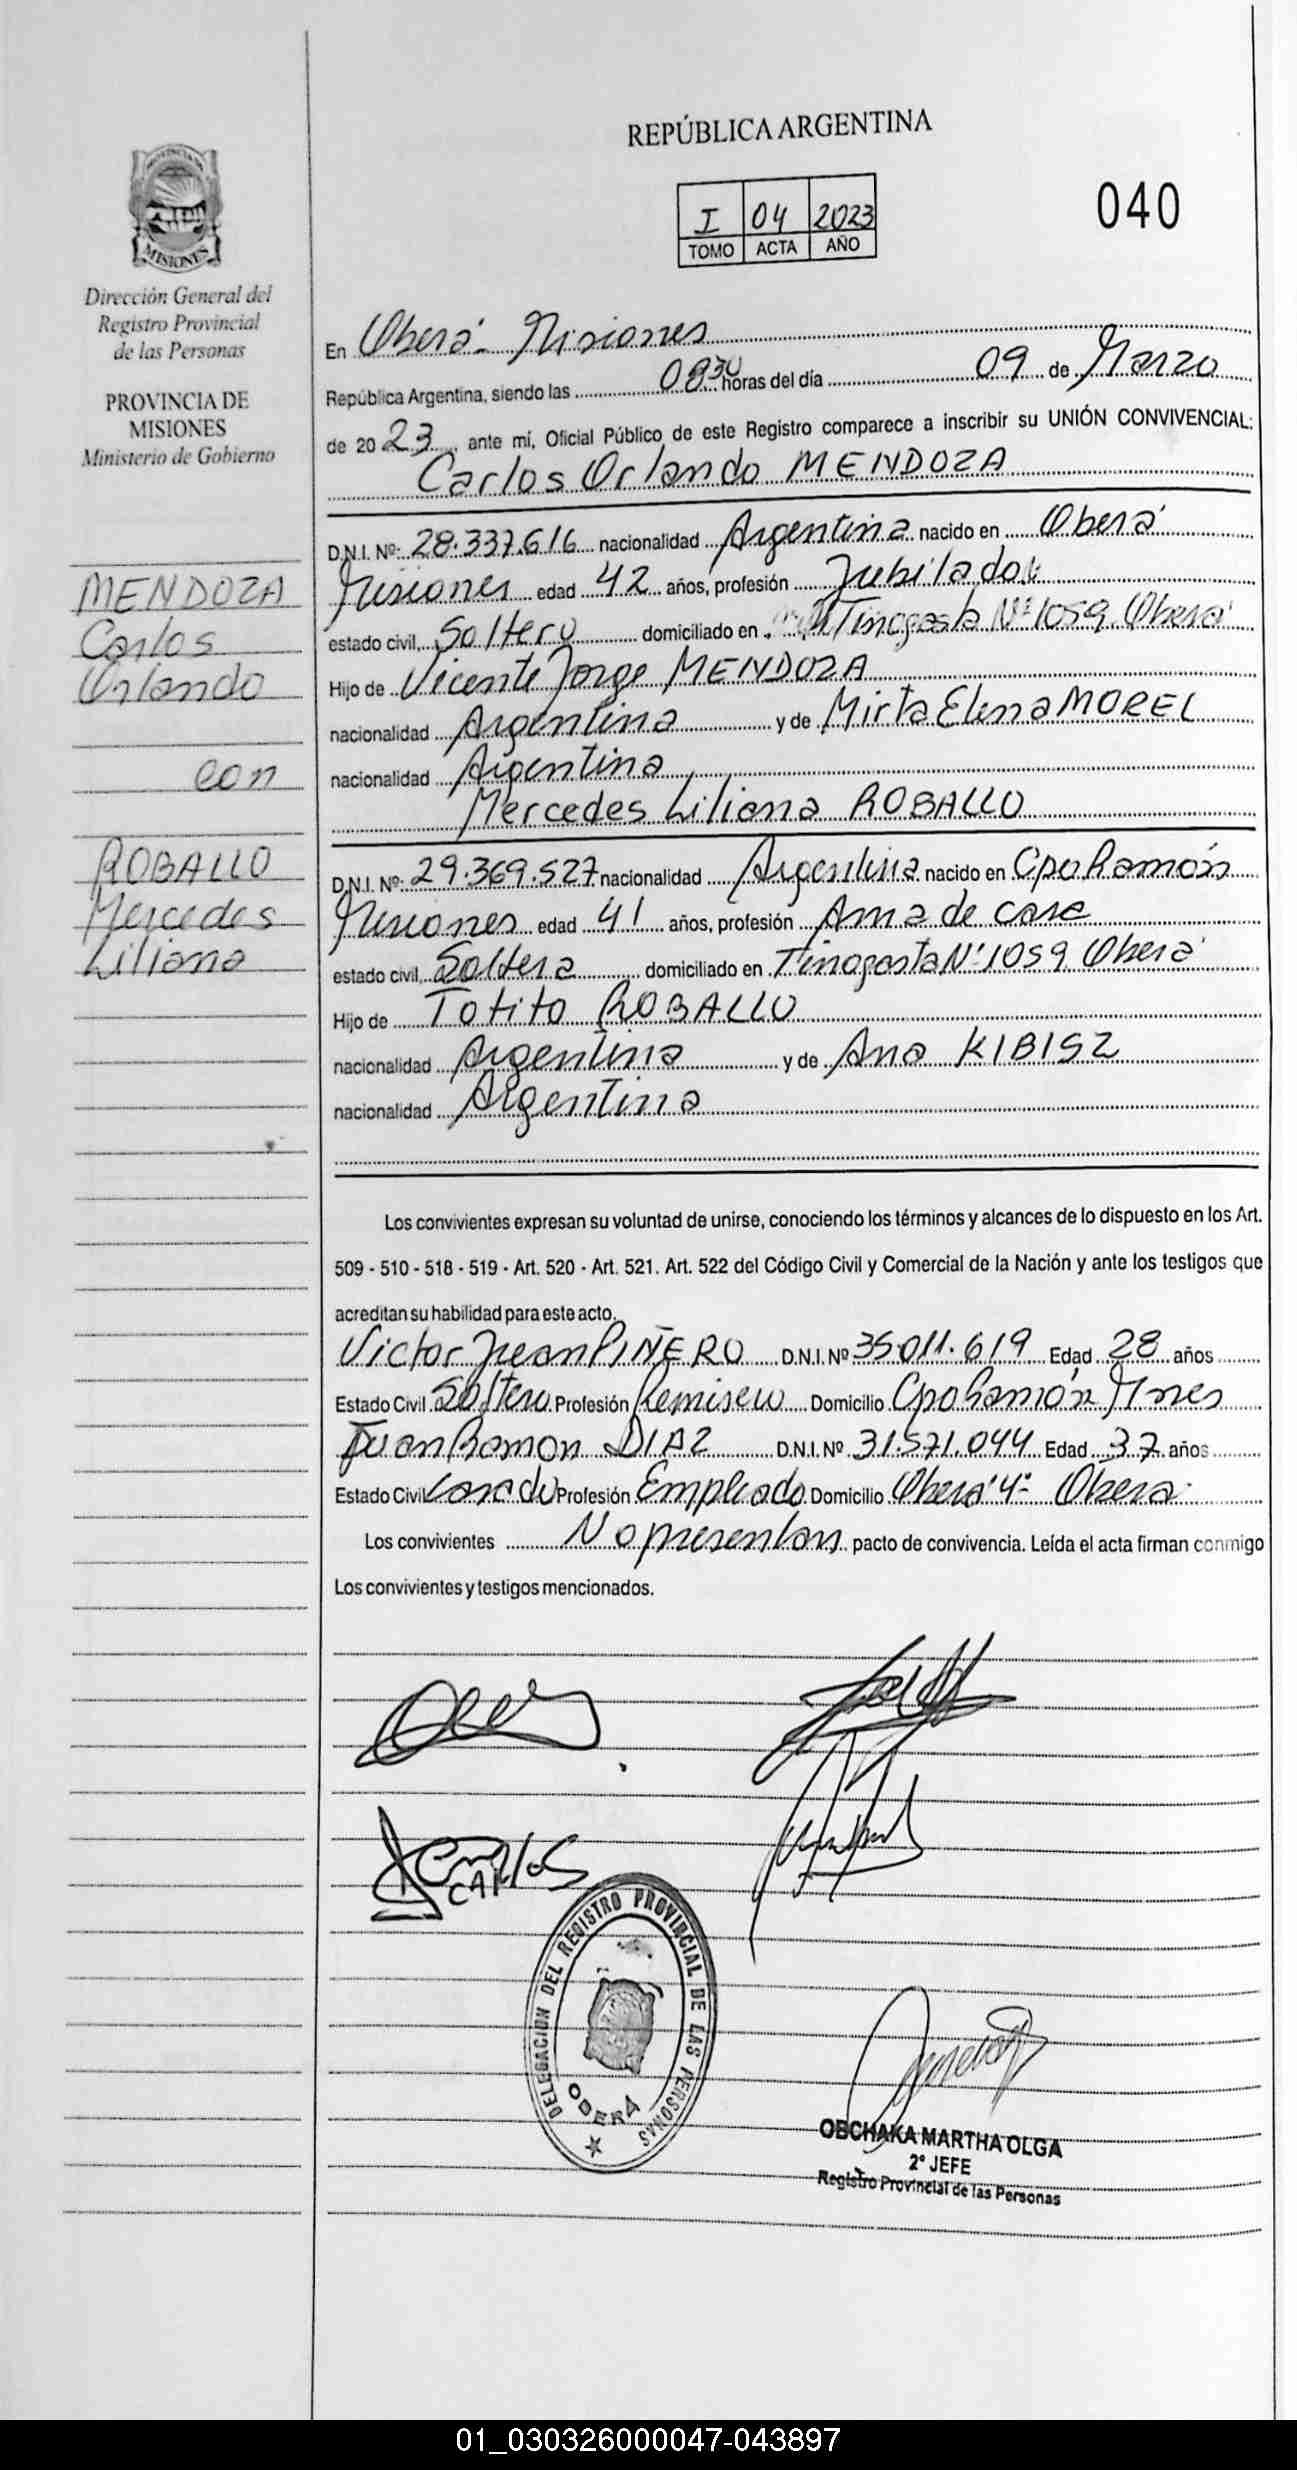 REPÚBLICA ARGENTINA
I 04 2023
TOMO ACTA AÑO
040
PROVINCIA DE
MISIONES
Dirección General del
Registro Provincial
de las Personas
PROVINCIA DE
MISIONES
Ministerio de Gobierno
MENDOZA
Carlos
Orlando
con
ROBALLO
Mercedes
Liliana
En Oberá - Misiones
República Argentina, siendo las 08:30 horas del día 09 de Marzo
de 2023, ante mí, Oficial Público de este Registro comparece a inscribir su UNIÓN CONVIVENCIAL:
Carlos Orlando MENDOZA
D.N.I. Nº: 28.337.616 nacionalidad Argentina nacido en Oberá
Misiones edad 42 años, profesión Jubilado
estado civil, Soltero domiciliado en Tinogasta Nº 1059 Oberá
Hijo de Vicente Jorge MENDOZA
nacionalidad Argentina y de Mirta Elena MOREL
nacionalidad Argentina
Mercedes Liliana ROBALLO
D.N.I. Nº: 29.369.527 nacionalidad Argentina nacido en Cpo Ramón
Misiones edad 41 años, profesión Ama de casa
estado civil, Soltera domiciliado en Tinogasta Nº 1059 Oberá
Hijo de Totito ROBALLO
nacionalidad Argentina y de Ana KIBISZ
nacionalidad Argentina
Los convivientes expresan su voluntad de unirse, conociendo los términos y alcances de lo dispuesto en los Art.
509 - 510 - 518 - 519 - Art. 520 - Art. 521. Art. 522 del Código Civil y Comercial de la Nación y ante los testigos que
acreditan su habilidad para este acto.
Victor Juan PIÑERO D.N.I. Nº 35.011.619 Edad 28 años
Estado Civil Soltero Profesión Remisero Domicilio Cpo Ramón Mnes
Juan Ramon DIAZ D.N.I. Nº 31.571.044 Edad 37 años
Estado Civil Casado Profesión Empleado Domicilio Oberá 4º Oberá
Los convivientes No presentan pacto de convivencia. Leída el acta firman conmigo
Los convivientes y testigos mencionados.
CARLOS
DELEGACION DEL REGISTRO PROVINCIAL DE LAS PERSONAS
OBERÁ
OBCHAKA MARTHA OLGA
2º JEFE
Registro Provincial de las Personas
01_030326000047-043897